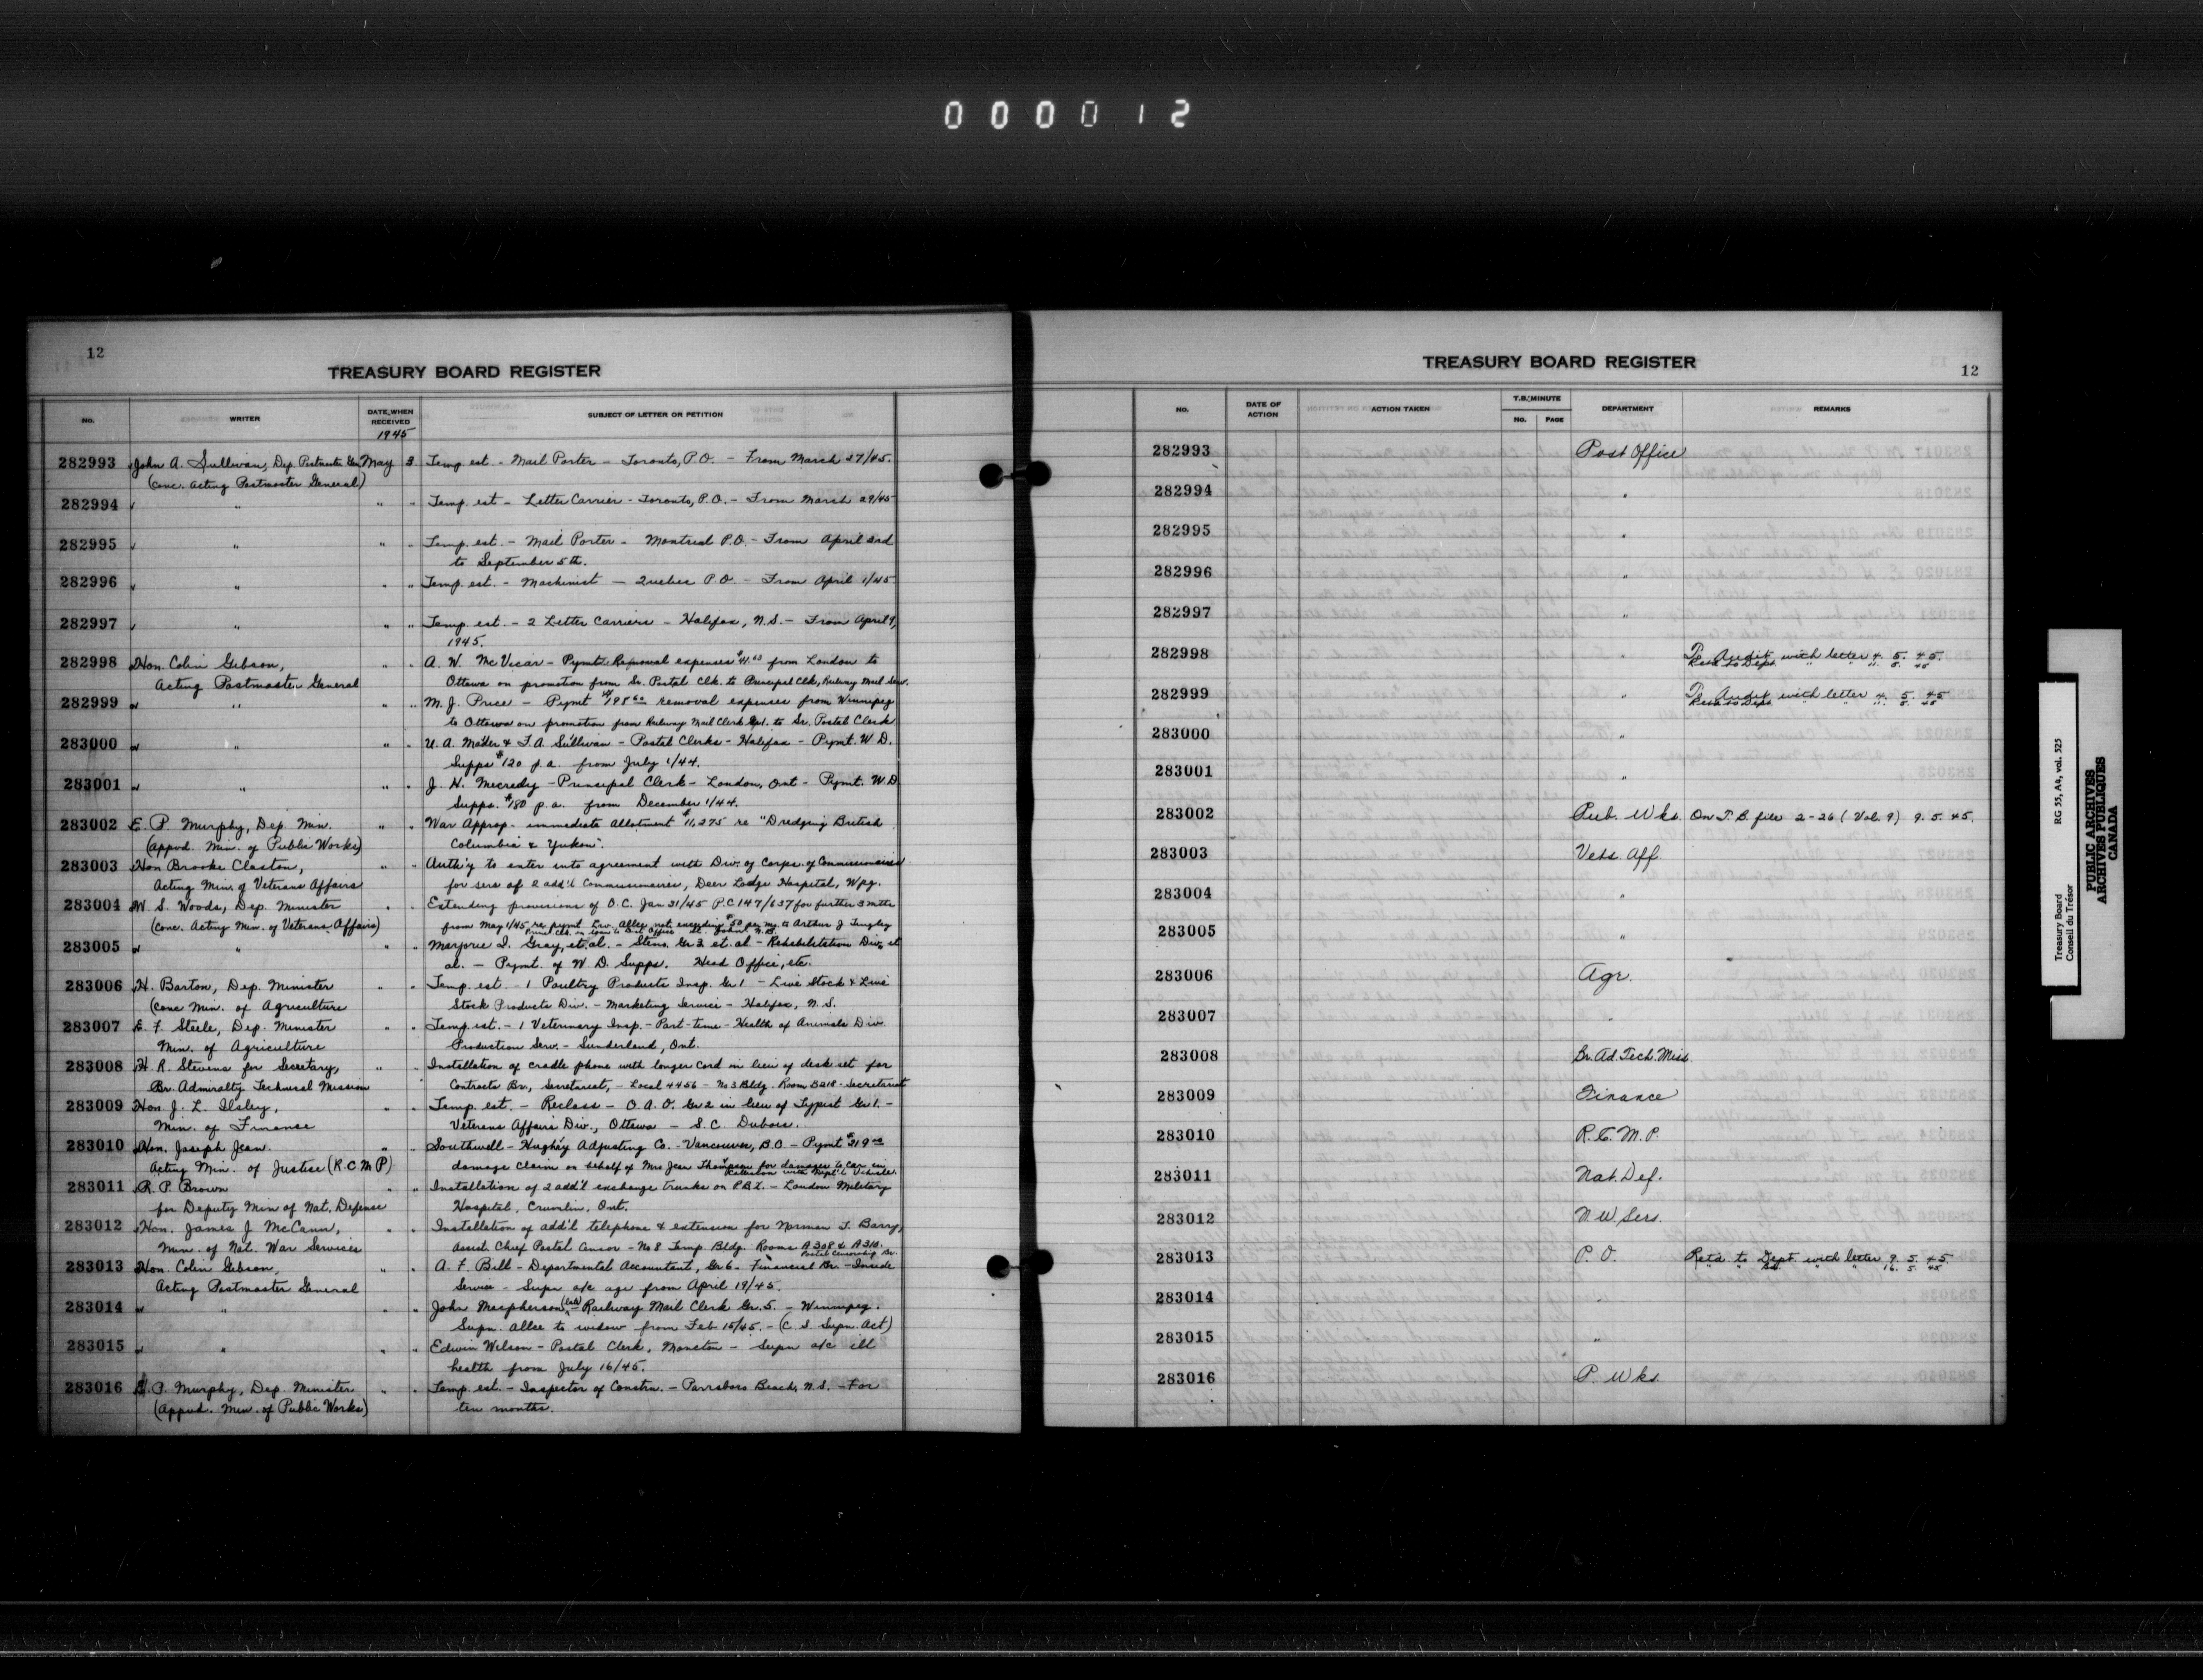 000012
12
TREASURY BOARD REGISTER
NO.
WRITER
DATE WHEN RECEIVED
1945
SUBJECT OF LETTER OR PETITION
282993 John A. Sullivan, Dep. Postmaster Gen. May 3 Temp. est. - Mail Porter - Toronto, P.O. - From March 27/45.
(conc. Acting Postmaster General)
282994 " " " Temp. est. - Letter Carrier - Toronto, P.O. - From March 29/45
282995 " " " Temp. est. - Mail Porter - Montreal P.O. - From April 3rd
to September 5th.
282996 " " " Temp. est. - Machinist - Quebec P.O. - From April 1/45
282997 " " " Temp. est. - 2 Letter Carriers - Halifax, N.S. - From April 9,
1945.
282998 Hon. Colin Gibson, " " A. W. McVicar - Pymt. Removal expenses from London to
Acting Postmaster General Ottawa on promotion from Sr. Postal Clk. to Principal Clk, Railway Mail Serv.
282999 " " " M. J. Price - Pymt removal expenses from Winnipeg
to Ottawa on promotion from Railway Mail Clerk to Sr. Postal Clerk
283000 " " " U. A. Mader & T. A. Sullivan - Postal Clerks - Halifax - Pymt. W. D.
Supps $120 p.a. from July 1/44.
283001 " " " J. H. Mecredy - Principal Clerk - London, Ont - Pymt. W. D.
Supps. $180 p.a. from December 1/44.
283002 E. P. Murphy, Dep. Min. " " War Approp. immediate Allotment $11,275 re "Dredging British
(Appvd. Min. of Public Works) Columbia & Yukon".
283003 Hon Brooke Claxton, " " Auth'y to enter into agreement with Div. of Corps. of Commissionaires
Acting Min. of Veterans Affairs for sers of 2 add'l Commissionaires, Deer Lodge Hospital, Wpg.
283004 W. S. Woods, Dep. Minister " " Extending provisions of O.C. Jan 31/45 P.C. 147/637 for further 3 mths
(conc. Acting Min. of Veterans Affairs) from May 1/45 re pymt. Liv. Allce not exceeding $50 per mo. to Arthur J Tingley
283005 " " " Marjorie I. Gray, et. al. - Steno. Gr 2 et. al - Rehabilitation Div, et
al. - Pymt. of W. D. Supps. Head Office, etc.
283006 H. Barton, Dep. Minister " " Temp. est. - 1 Poultry Products Insp. Gr 1 - Live Stock & Live
(conc Min. of Agriculture Stock Products Div. - Marketing Service - Halifax, N. S.
283007 E. F. Steele, Dep. Minister " " Temp. est. - 1 Veterinary Insp. - Part-time - Health of Animals Div.
Min. of Agriculture Production Serv. - Sunderland, Ont.
283008 H. R. Stevens for Secretary, " " Installation of cradle phone with longer cord in lieu of desk set for
Br. Admiralty Technical Mission Contracts Br., Secretariat, - Local 4456 - No 3 Bldg. Room B218 - Secretariat
283009 Hon. J. L. Ilsley, " " Temp. est. - Reclass - O. A. O. Gr 2 in lieu of Typist Gr 1. -
Min. of Finance Veterans Affairs Div., Ottawa - S. C. Dubois.
283010 Hon. Joseph Jean. " " Southwell - Hughey Adjusting Co. - Vancouver, B.C. - Pymt
Acting Min. of Justice (R.C.M.P.) damage claim on behalf of Mrs Jean Thompson for damages to car in
collision with Dept'l Vehicle.
283011 R. P. Brown " " Installation of 2 add'l exchange trunks on P.B.X. - London Military
for Deputy Min of Nat. Defense Hospital, Crumlin, Ont.
283012 Hon. James J McCann, " " Installation of add'l telephone & extension for Norman T. Barry,
Min. of Nat. War Services Assist. Chief Postal Censor - No 8 Temp. Bldg. Rooms A308 & A310.
Postal Censorship Br.
283013 Hon. Colin Gibson, " " A. F. Ball - Departmental Accountant, Gr 6 - Financial Br. - Inside
Acting Postmaster General Service - Supn a/c age from April 19/45.
283014 " " " John Macpherson (late) - Railway Mail Clerk Gr. 5. - Winnipeg.
Supn. allce to widow from Feb 15/45. - (C. S. Supn. Act)
283015 " " " Edwin Wilson - Postal Clerk, Moncton - Supn a/c ill
health from July 16/45.
283016 E. P. Murphy, Dep. Minister " " Temp. est. - Inspector of Constrn. - Parrsboro Beach, N. S. - For
(Appvd. Min. of Public Works) ten months.
TREASURY BOARD REGISTER
12
NO.
DATE OF ACTION
ACTION TAKEN
T.B. MINUTE
NO. PAGE
DEPARTMENT
REMARKS
282993 Post Office
282994 "
282995 "
282996 "
282997 "
282998 " To Audit with letter 4. 5. 45.
Retd to Dept. " " 11. 5. 45
282999 " To Audit with letter 4. 5. 45
Retd to Dept. " " 11. 5. 45
283000 "
283001 "
283002 Pub. Wks. On T. B. file 2-26 (Vol. 9) 9. 5. 45.
283003 Vets. Aff.
283004 "
283005 "
283006 Agr.
283007 "
283008 Br. Ad. Tech. Miss.
283009 Finance
283010 R. C. M. P.
283011 Nat. Def.
283012 N. W Sers.
283013 P. O. Ret'd to Dept. with letter 9. 5. 45.
" " " " " 16. 5. 45
283014 "
283015 "
283016 P. Wks.
Treasury Board RG 55, A4, vol. 525
Conseil du Trésor
PUBLIC ARCHIVES
ARCHIVES PUBLIQUES
CANADA